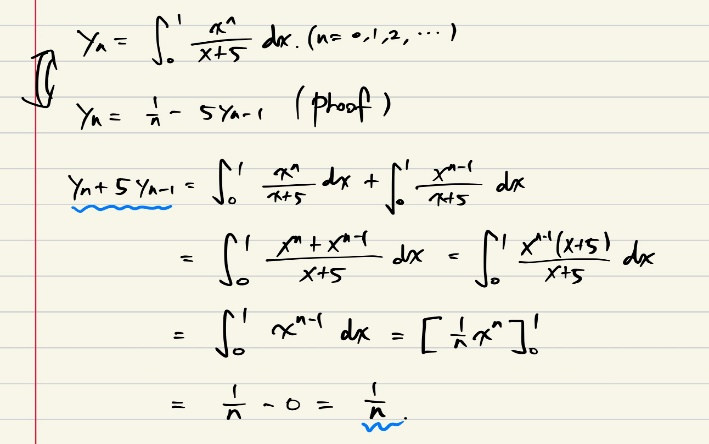 yₙ = ∫₀¹ xⁿ/(x+5) dx. (n = 0, 1, 2, ⋯)
yₙ = 1/n - 5yₙ₋₁ (proof)
yₙ + 5yₙ₋₁ = ∫₀¹ xⁿ/(x+5) dx + ∫₀¹ xⁿ⁻¹/(x+5) dx
= ∫₀¹ (xⁿ + xⁿ⁻¹)/(x+5) dx = ∫₀¹ xⁿ⁻¹(x+5)/(x+5) dx
= ∫₀¹ xⁿ⁻¹ dx = [1/n xⁿ]₀¹
= 1/n - 0 = 1/n.